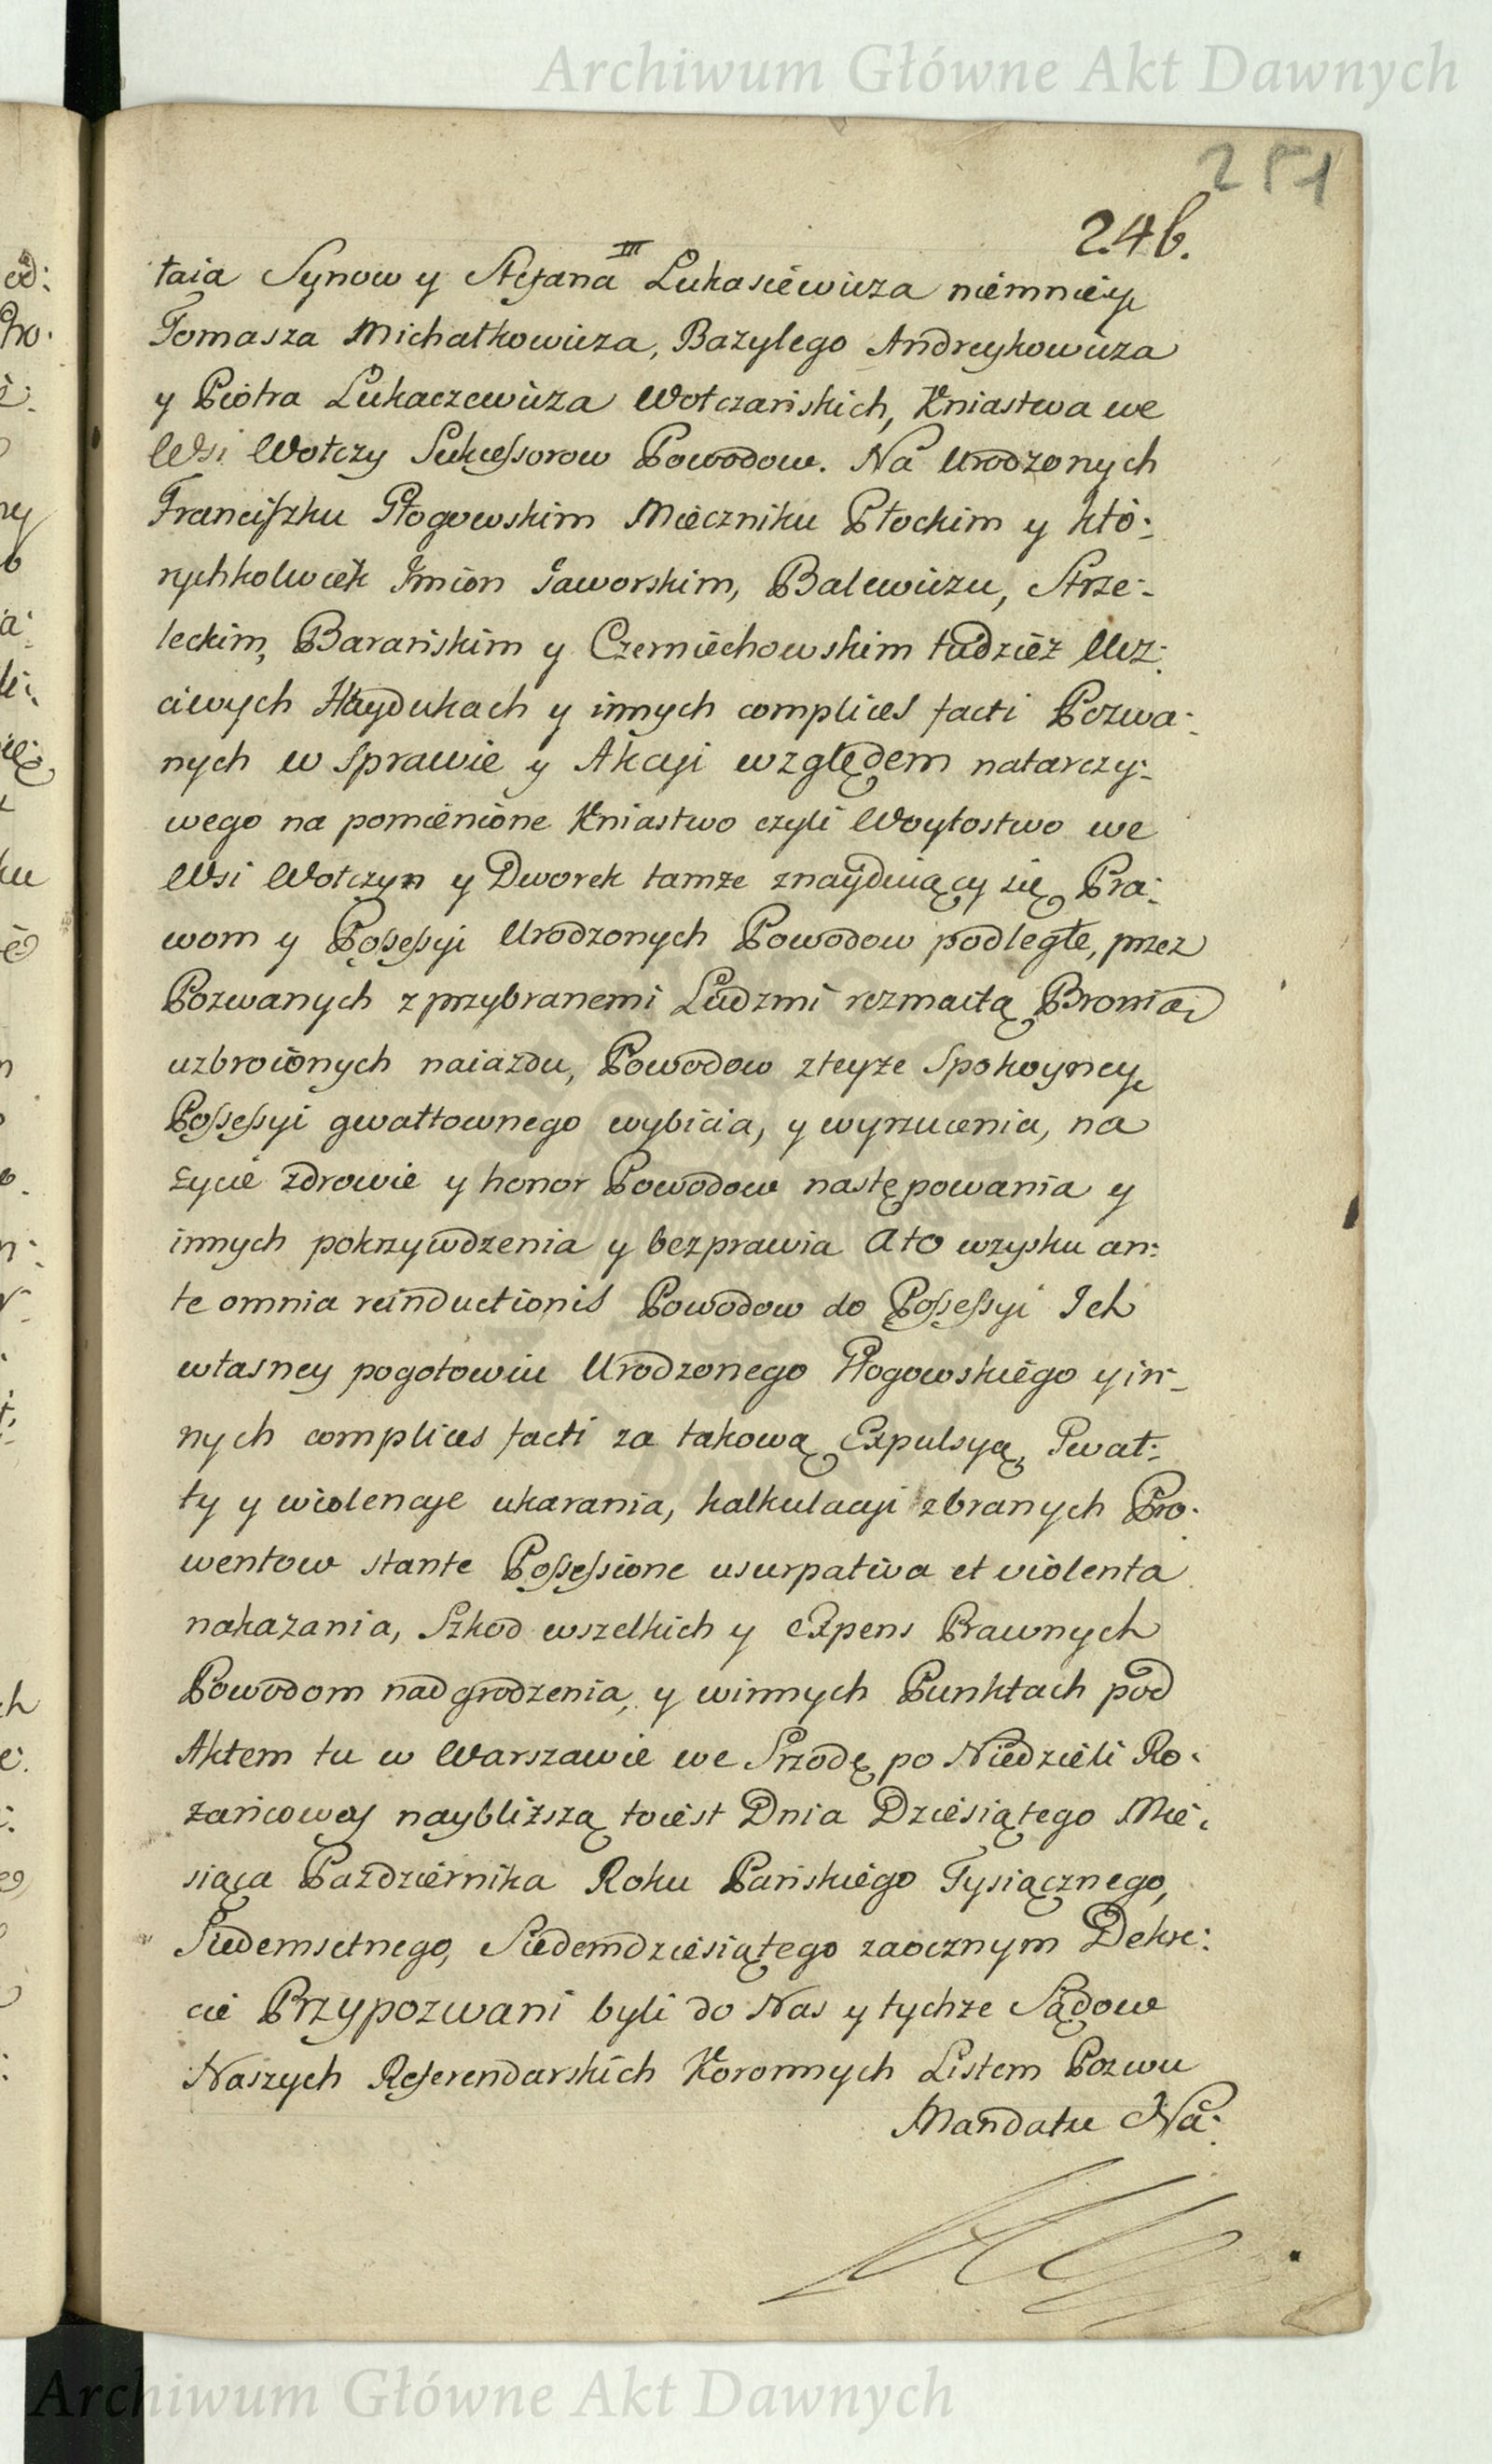 Archiwum Główne Akt Dawnych
251
246.
łaia Synow y Stefana III Łukasiewicza niemniey
Tomasza Michałkowicza, Bazylego Andreykowicza
y Piotra Łukaczewicza Wołczańskich, Kniastwa we
Wsi Wołczy Sukcessorow Powodow. Na Urodzonych
Franciszku Głogowskim Mieczniku Płockim y któ:
rychkolwiek Jmion Jaworskim, Balewiczu, Strze:
leckim, Barańskim y Czerniechowskim tudzież Ucz:
ciwych Haydukach y innych complices facti Pozwa:
nych w sprawie y Akcyi względem natarczy:
wego na pomienione Kniastwo czyli Woytostwo we
Wsi Wołczyn y Dworek tamże znayduiący się Pra:
wom y Possessyi Urodzonych Powodow podległe, przez
Pozwanych z przybranemi Ludzmi rozmaitą Bronią
uzbroionych naiazdu, Powodow zteyże Spokoyney
Possessyi gwałtownego wybicia, y wyrzucenia, na
życie zdrowie y honor Powodow następowania y
innych pokrzywdzenia y bezprawia ato wzysku an:
te omnia reinductionis Powodow do Possessyi Ich
własney pogotowiu Urodzonego Głogowskiego y in:
nych complices facti za takową Expulsyą, Gwał:
ty y wiolencye ukarania, kalkulacyi zbranych Pro:
wentow stante Possessione usurpativa et violenta
nakazania, Szkod wszelkich y Expens Prawnych
Powodom nadgrodzenia, y winnych Punktach pod
Aktem tu w Warszawie we Srzodę po Niedzieli Ro:
żańcowey naybliższą toiest Dnia Dziesiątego Mie:
siąca Października Roku Pańskiego Tysiącznego,
Siedemsetnego, Siedemdziesiątego zaocznym Dekre:
cie Przypozwani byli do Nas y tychże Sądow
Naszych Referendarskich Koronnych Listem Pozwu
Mandatu Na:
Archiwum Główne Akt Dawnych